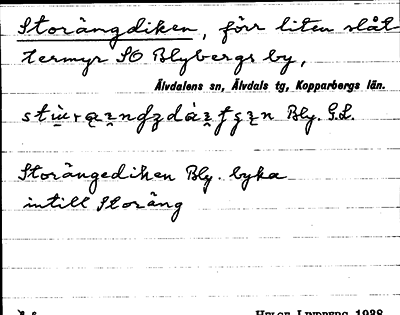 Storängdiken, förr liten slåt
termyr SO Blybergs by,
Älvdalens sn, Älvdals tg, Kopparbergs län.
Bly. G.L.
Storängediken Bly. byka
intill Storäng
HELGE LINDBERG 1938